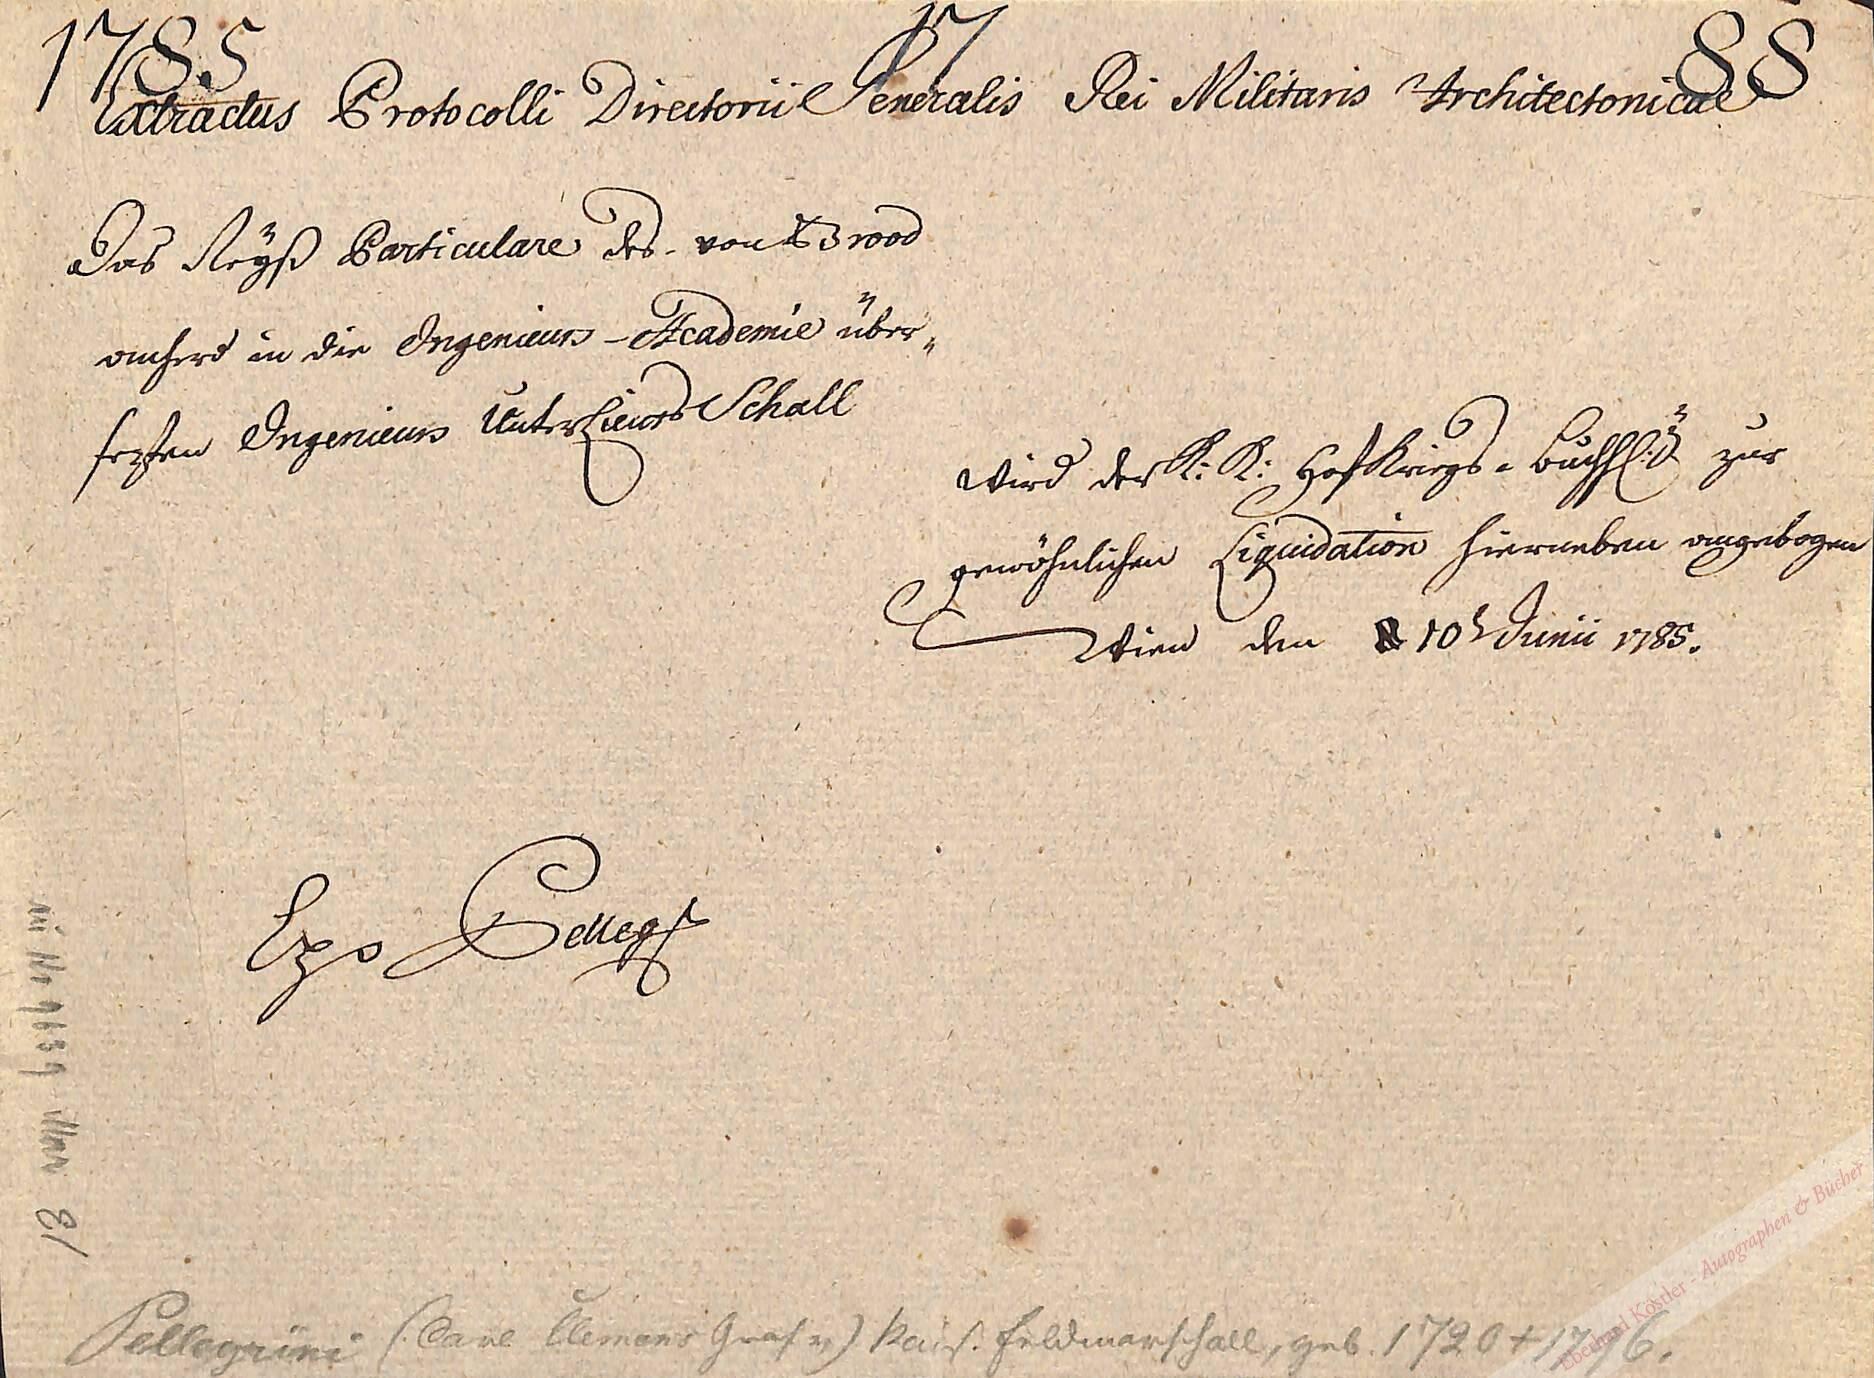 1785 17 88
Extractus Protocolli Directorii Generalis Rei Militaris Architectonicae
Das Reyß Particulare des von Brood
anhero in die Ingenieurs-Academie über„
sezten Ingenieurs Unter Lieuts Schall
Wird der K: K: Hof Kriegs- Buchh: zur
gewöhnlichen Liquidation hierneben angebogen
Wien den 10t Junii 1785.
Pelleg
Pellegrini (Carl Clemens Graf v) Kais. Feldmarschall, geb. 1720 + 1796.
Eberhard Köstler - Autographen & Bücher